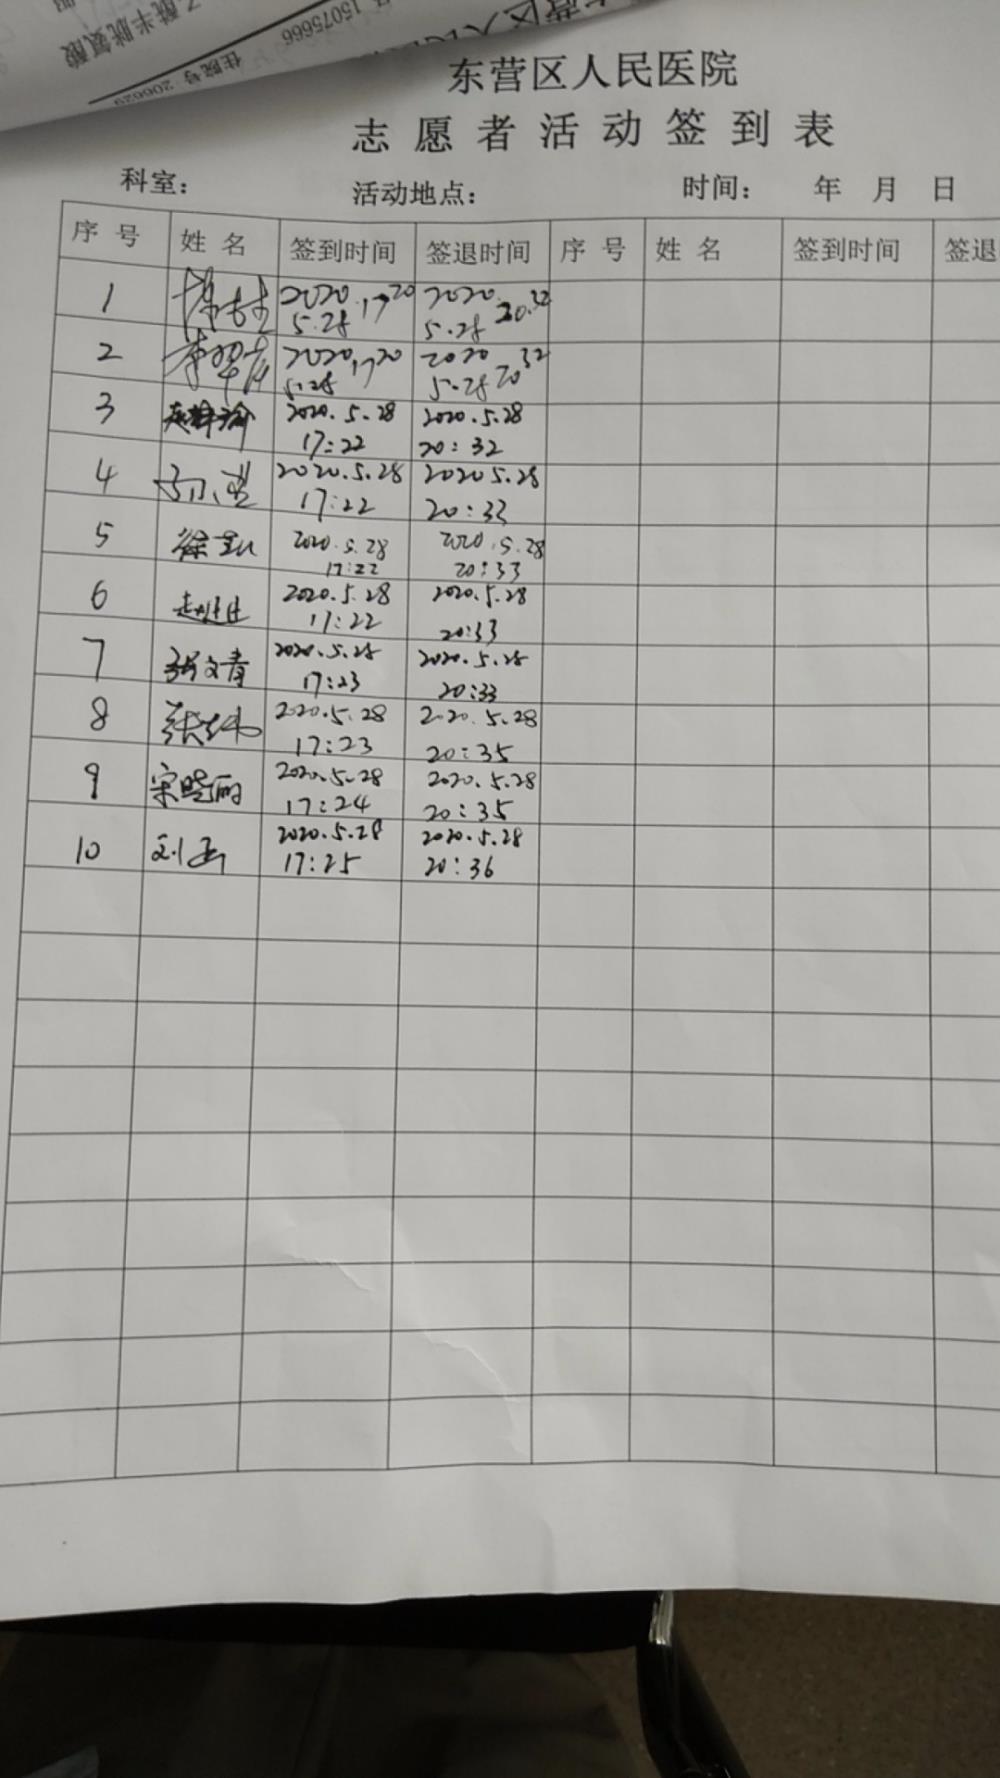 乙酰半胱氨酸
15075666
住院号 206629
东营区人民医院
志愿者活动签到表
科室： 活动地点： 时间： 年 月 日
序号 姓名 签到时间 签退时间 序号 姓名 签到时间 签退
1 2020 5.28 17 20 2020 5.28 20.32
2 2020 5.28 17 20 2020 5.28 20 32
3 2020.5.28 2020.5.28
17:22 20:32
4 2020.5.28 2020 5.28
17:22 20:33
5 2020.5.28 2020.5.28
17:22 20:33
6 2020.5.28 2020.5.28
17:22 20:33
7 张文青 2020.5.28 2020.5.28
17:23 20:33
8 张红伟 2020.5.28 2020.5.28
17:23 20:35
9 宋晓丽 2020.5.28 2020.5.28
17:24 20:35
10 2020.5.28 2020.5.28
17:25 20:36